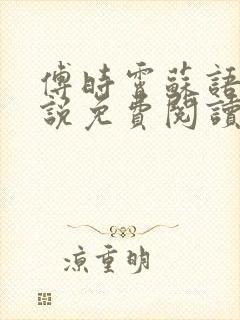 傅時霄蘇語
說免費閱讀
涼重明